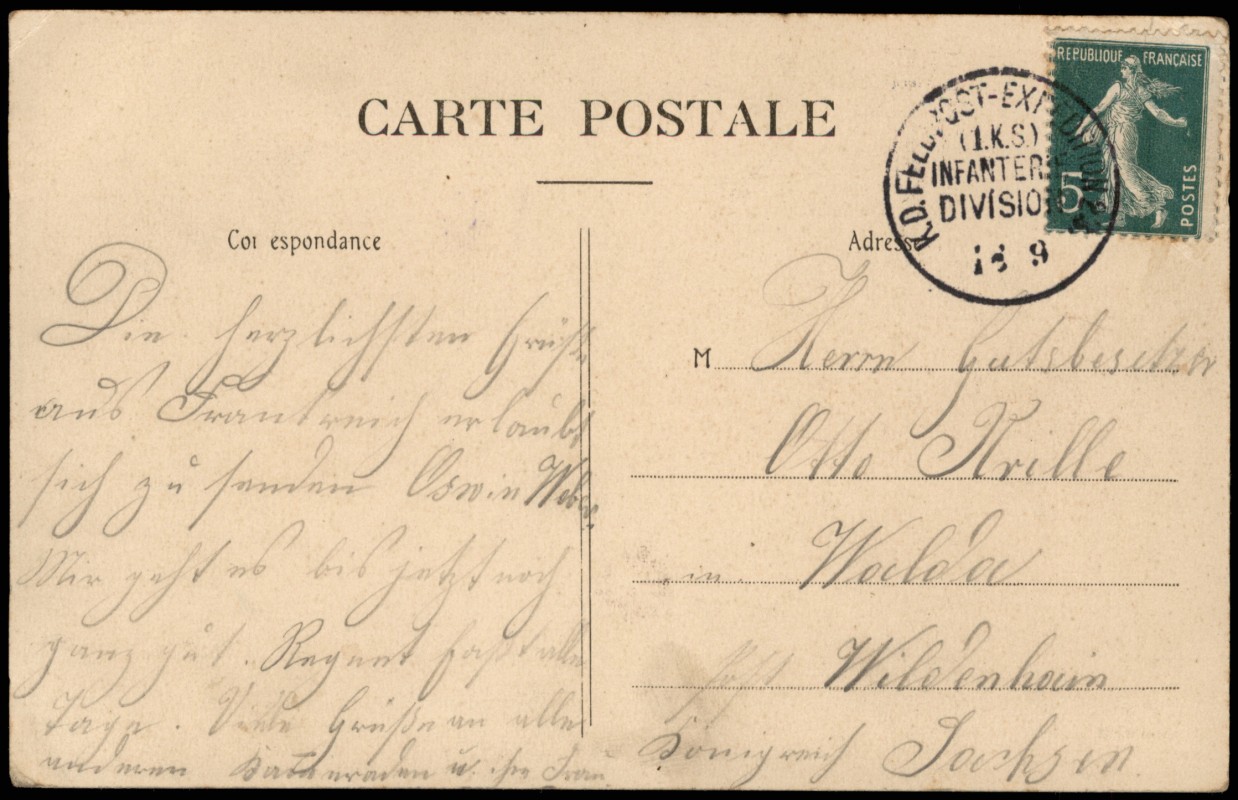 CARTE POSTALE
REPUBLIQUE FRANÇAISE
5
POSTES
K.D. FELDPOST-EXPEDITION
(1.K.S.)
INFANTERIE
DIVISION
18 9
Cor espondance
Adresse
Die herzlichsten Grüße
aus Frankreich erlaubt
sich zu senden Oswin Weber.
Mir geht es bis jetzt noch
ganz gut. Regnet fast alle
Tage. Viele Grüße an alle
anderen Kameraden u. ihre Frau
M Herrn Gutsbesitzer
Otto Krille
in Walda
Post Wildenhain
Königreich Sachsen.